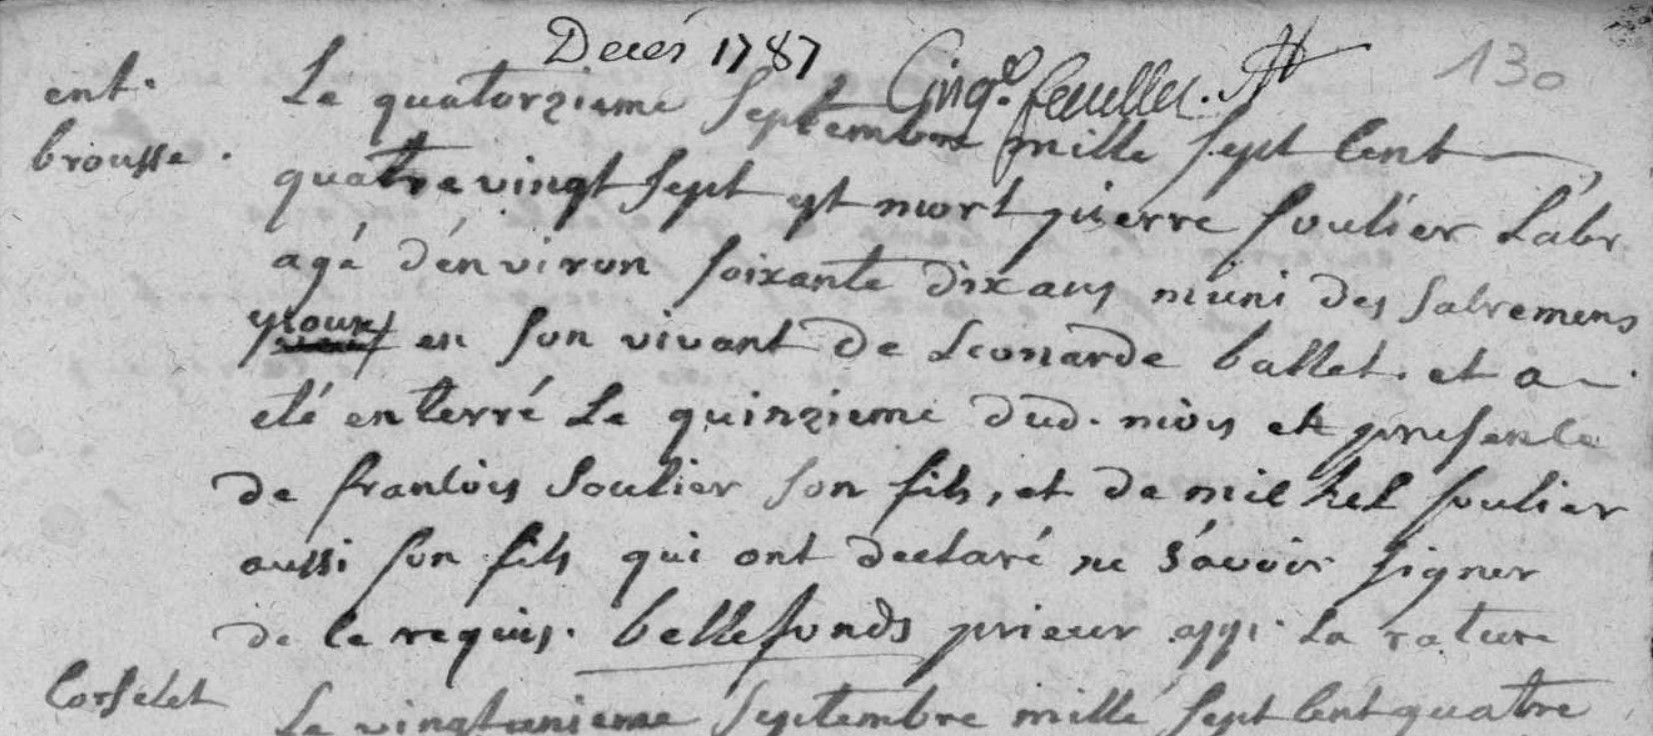 Decés 1787
Cinq.e feuillet.
130
ent.
brousse.
Le quatorzieme septembre mille sept cent
quatre vingt sept est mort pierre soulier Labr
agé d'environ soixante dix ans muni des sacremens
époux en son vivant de Leonarde ballet. et a
eté enterré Le quinzieme dud. mois en presence
de francois soulier son fils, et de michel soulier
aussi son fils qui ont declaré ne s'avoir signer
de ce requis. bellefonds prieur app. La rature
Corselet
Le vingtunieme septembre mille sept cent quatre